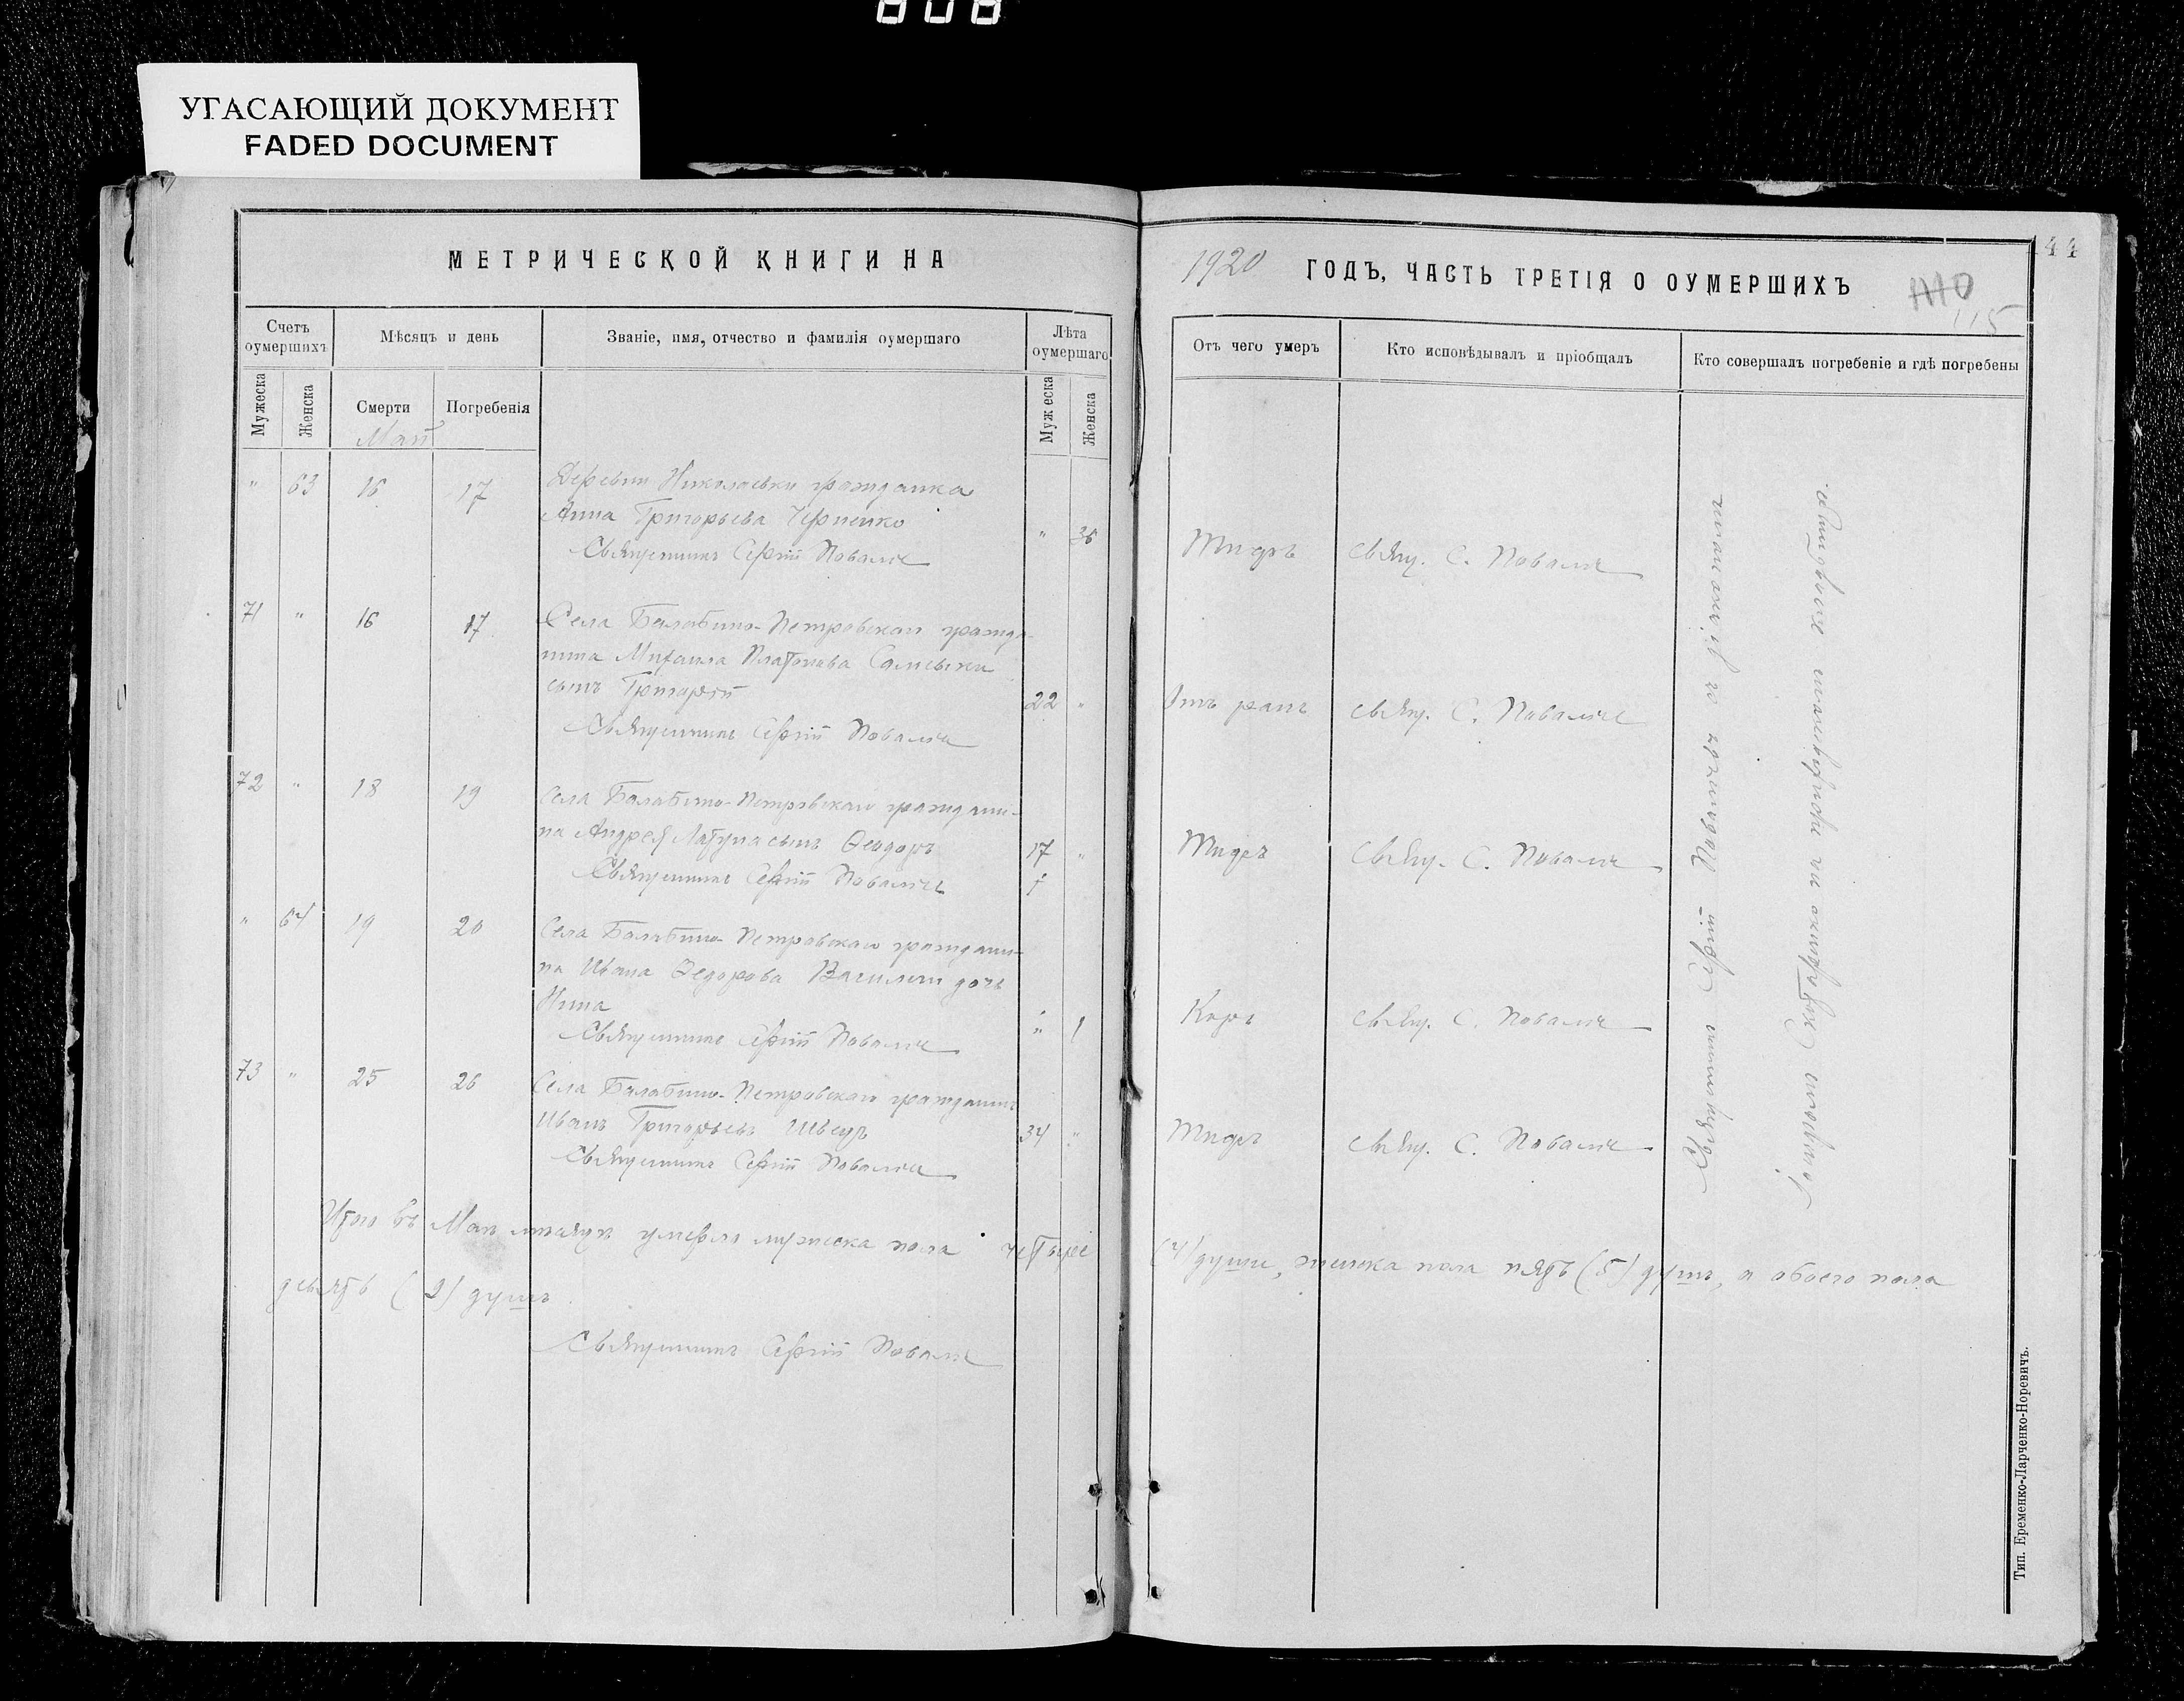 808
УГАСАЮЩИЙ ДОКУМЕНТ
FADED DOCUMENT
МЕТРИЧЕСКОЙ КНИГИ НА
1920 ГОДЪ, ЧАСТЬ ТРЕТІЯ О ОУМЕРШИХЪ
44
115
Счетъ оумершихъ
Мѣсяцъ и день
Званіе, имя, отчество и фамилія оумершаго
Лѣта оумершаго
Отъ чего умеръ
Кто исповѣдывалъ и пріобщалъ
Кто совершалъ погребеніе и гдѣ погребены
Мужеска
Женска
Смерти
Погребенія
Муж еска
Женска
Май
" 63 16 17 Деревни Николаевки гражданка
Анна Григорьева Черненко
" 36 Тифъ Свящ. С. Поваля
Священникъ Сергій Поваля
71 " 16 17 Села Балабино-Петровскаго гражда-
нина Михаила Платонова
сынъ Григорій
22 " Отъ ранъ Свящ. С. Поваля
Священникъ Сергій Поваля
72 " 18 19 Села Балабино-Петровскаго граждани-
на Андрея сынъ Ѳеодоръ
17 " Тифъ Свящ. С. Поваля
Священникъ Сергій Поваля
" 64 19 20 Села Балабино-Петровскаго граждани-
на Ивана Ѳедорова дочь
Нина
" 1 Корь Свящ. С. Поваля
Священникъ Сергій Поваля
73 " 25 26 Села Балабино-Петровскаго гражданинъ
Иванъ Григорьевъ Швецъ
34 " Тифъ Свящ. С. Поваля
Священникъ Сергій Поваля
Священникъ Сергій Поваля съ псаломщ.
на приходскомъ кладбищѣ.
Итого въ Маѣ мѣсяцѣ умерло мужеска пола четыре (4) души, женска пола пять (5) душъ, а обоего пола
девять (9) душъ
Священникъ Сергій Поваля
Тип. Еременко-Ларченко-Норевичъ.